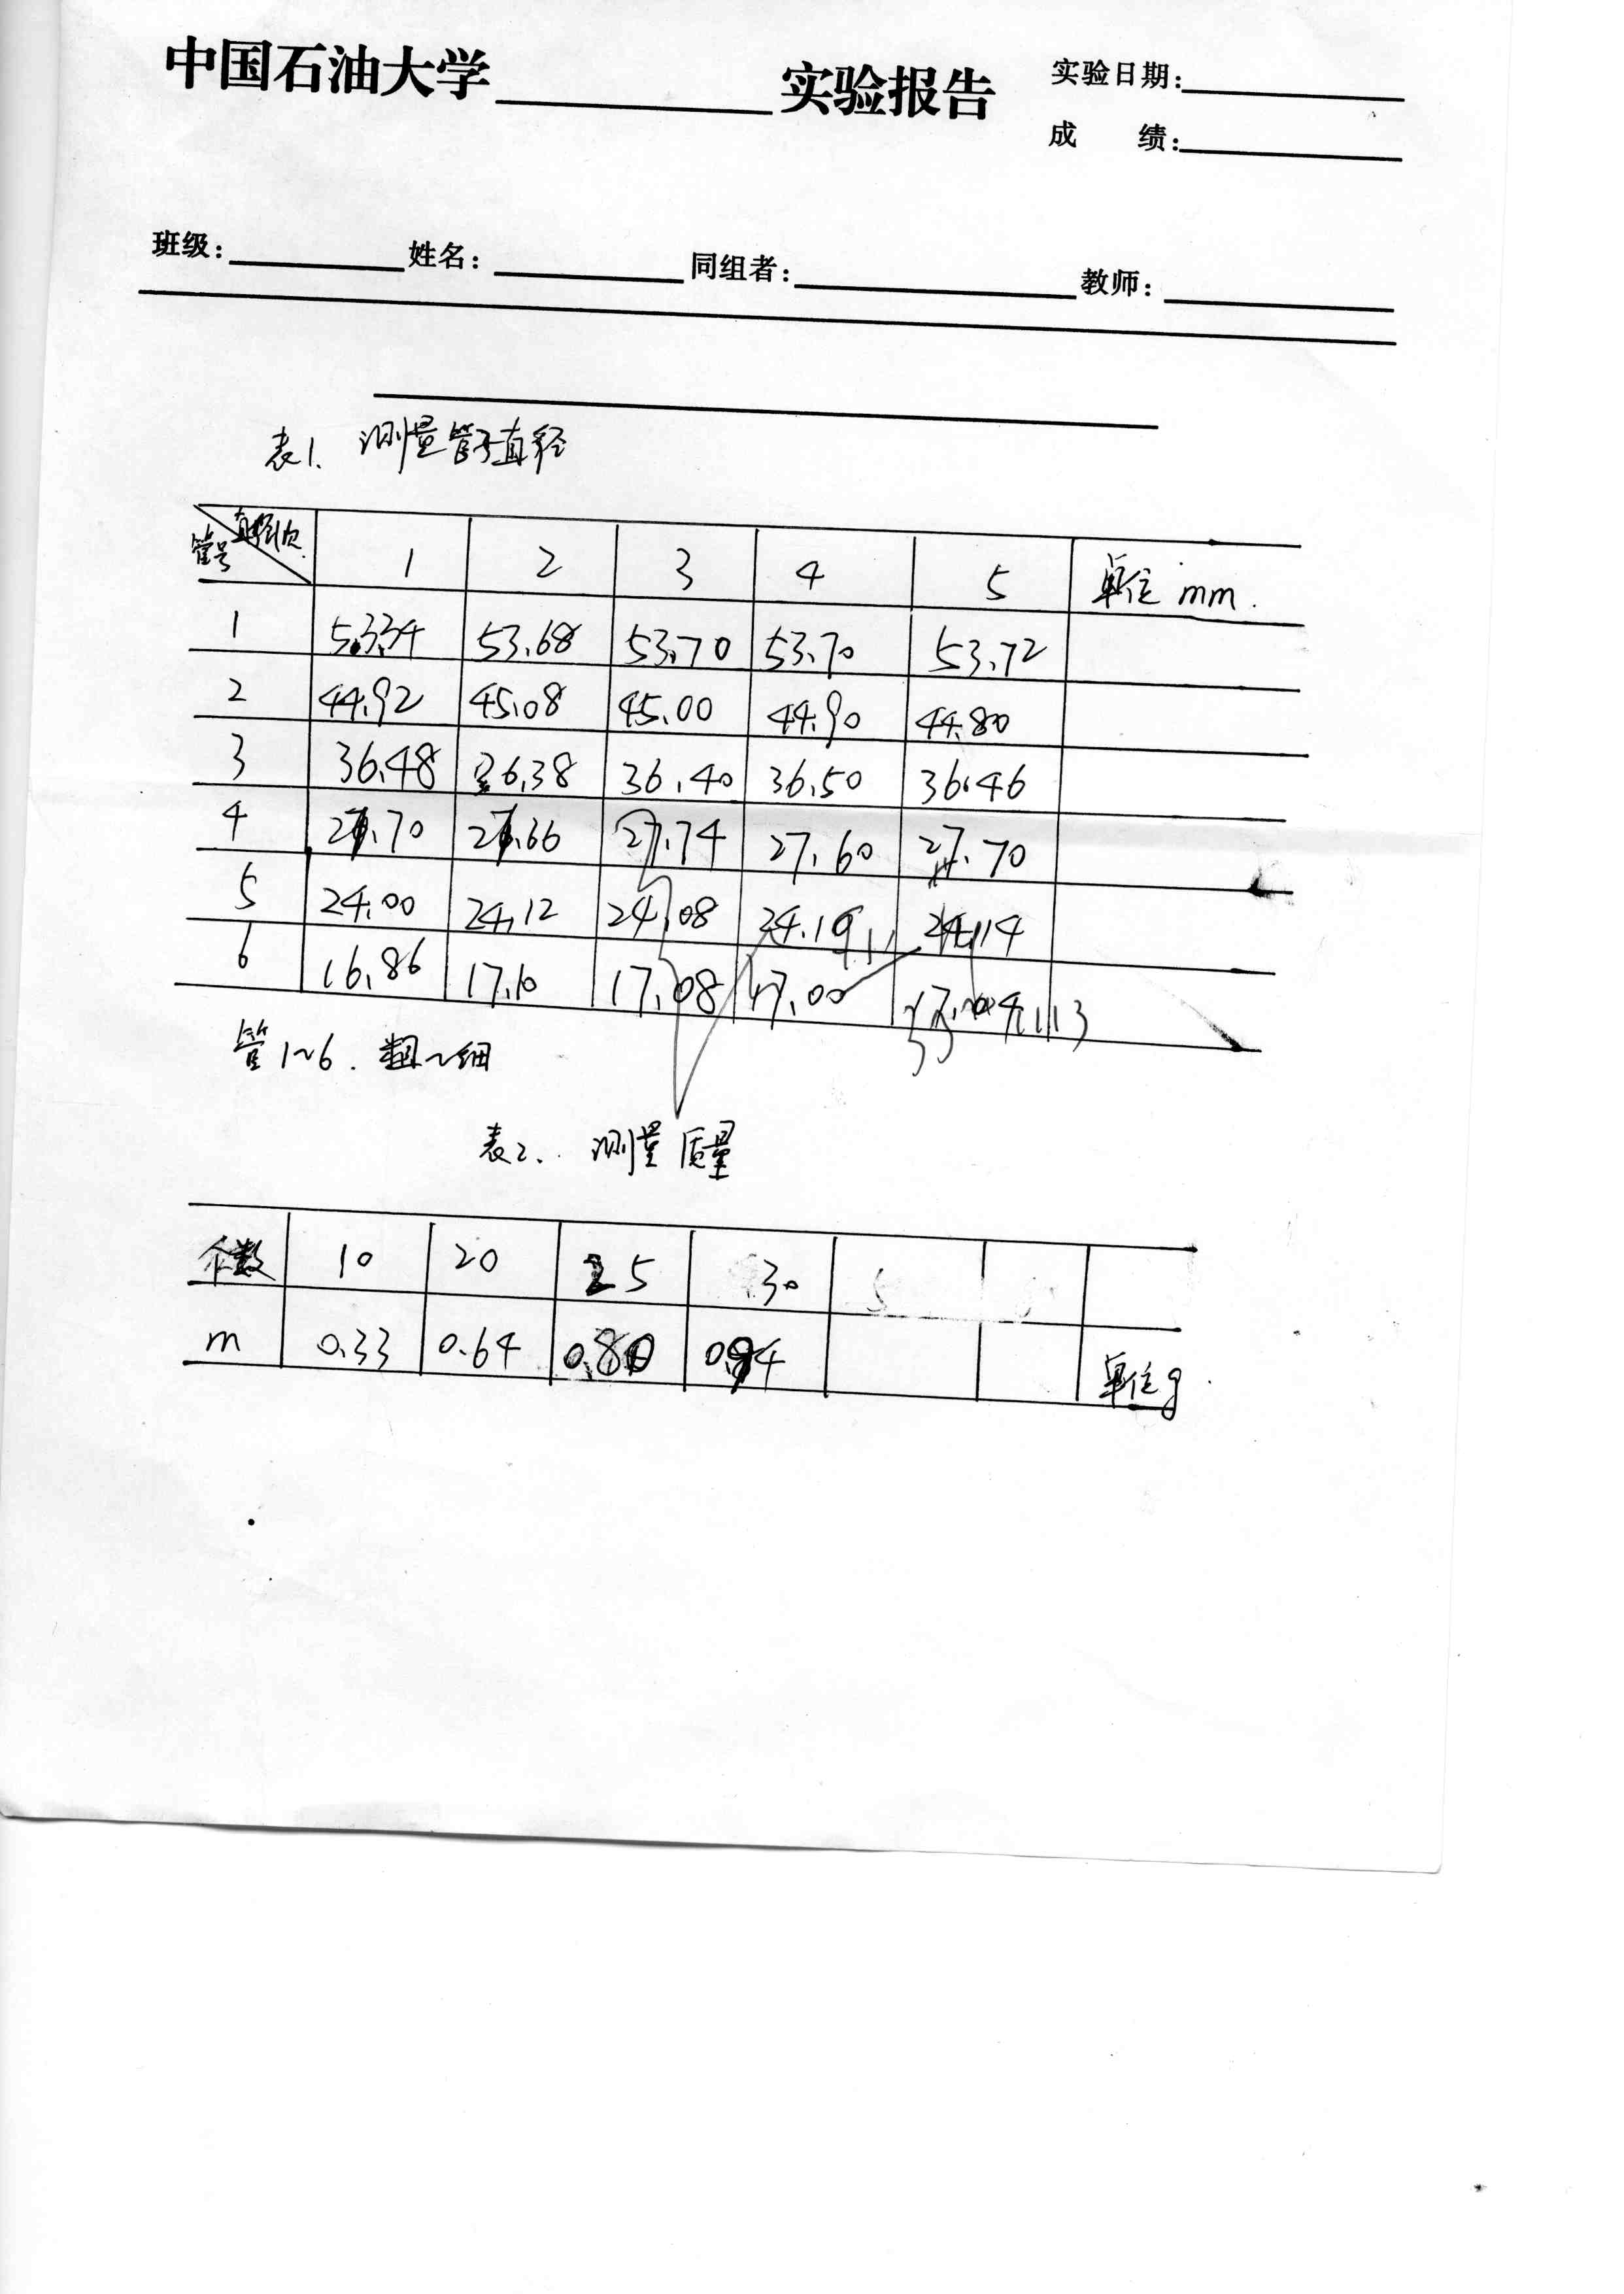 中国石油大学 实验报告 实验日期:
成 绩:
班级: 姓名: 同组者: 教师:
表1. 测量管子直径
管号 1 2 3 4 5 单位 mm.
1 5.3.34 53.68 53.70 53.70 53.72
2 44.92 45.08 45.00 44.90 44.80
3 36.48 36.38 36.40 36.50 36.46
4 27.70 27.66 27.74 27.60 27.70
5 24.00 24.12 24.08 24.10 24.14
6 16.86 17.10 17.08 17.00
管1~6. 粗~细
表2. 测量质量
个数 10 20 25 30
m 0.33 0.64 0.80 0.94 单位g